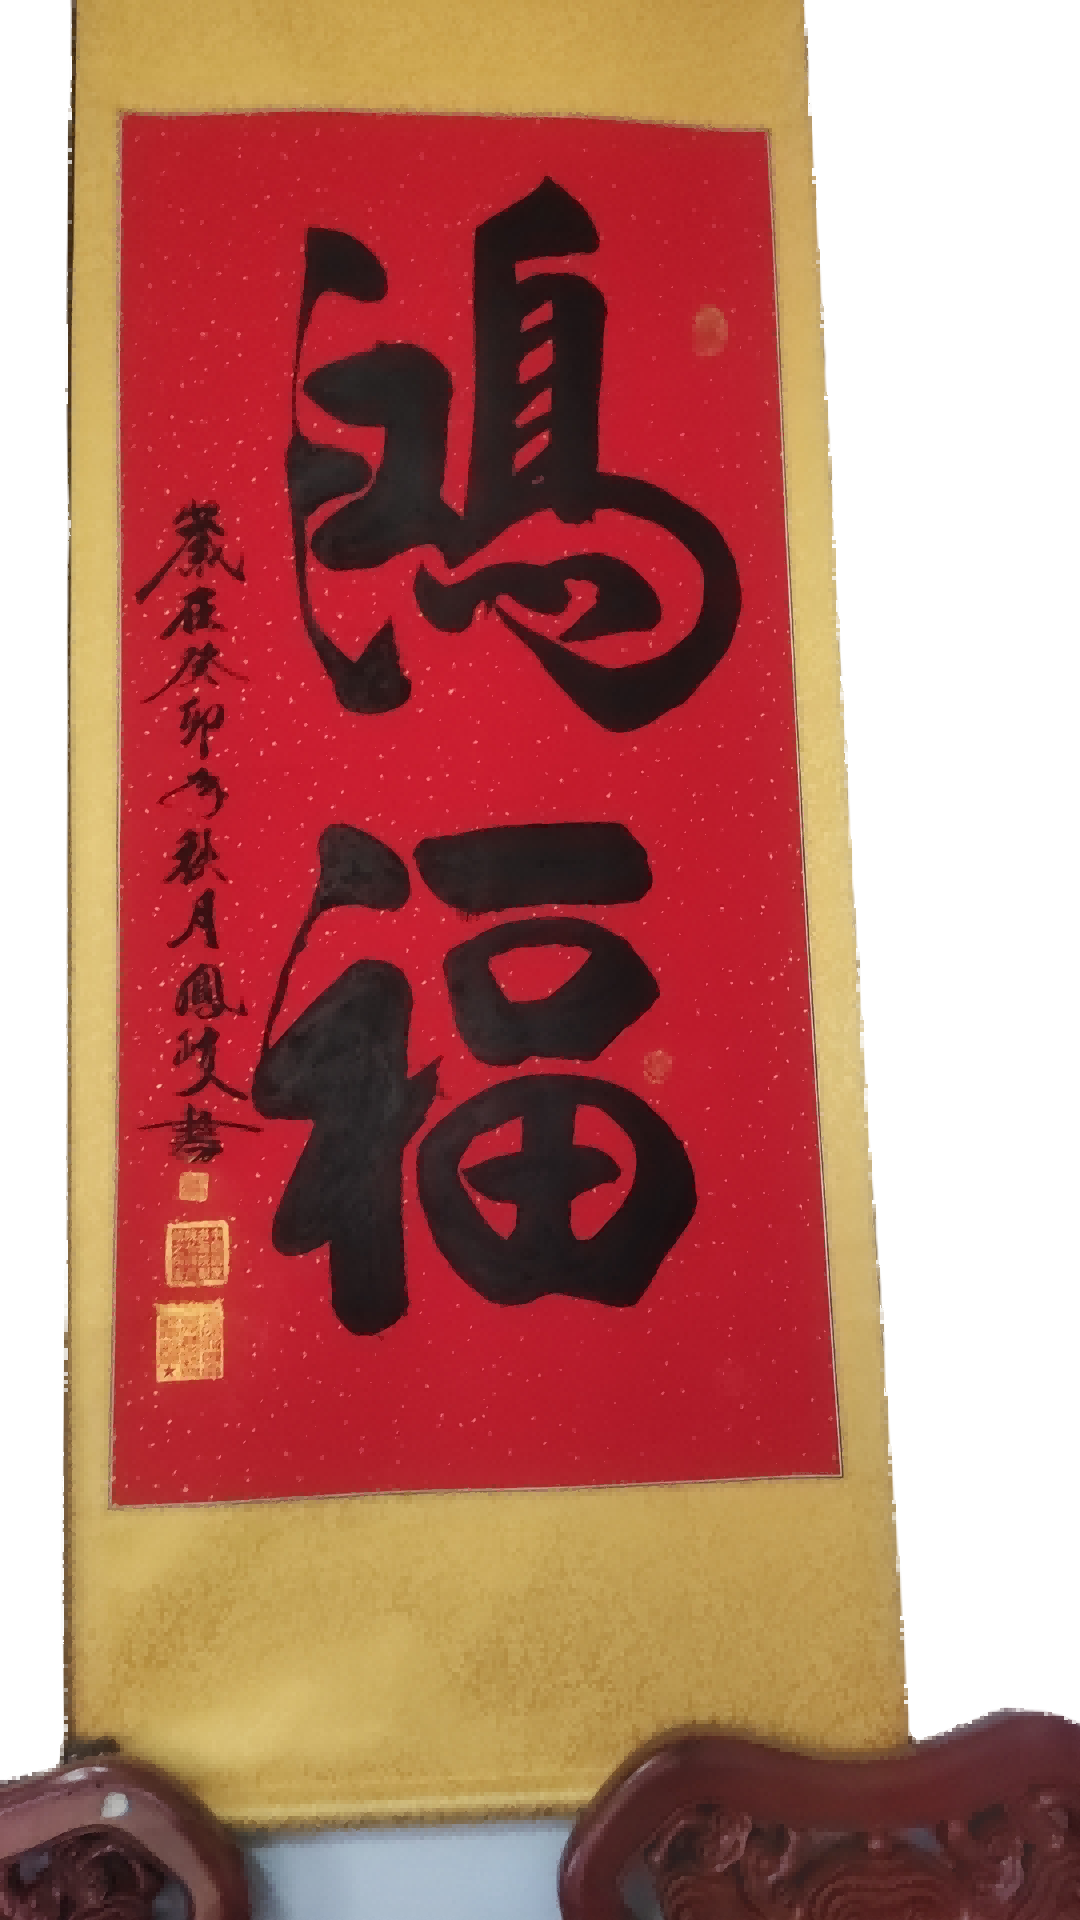 鴻福
歲在癸卯年秋月鳳岐書